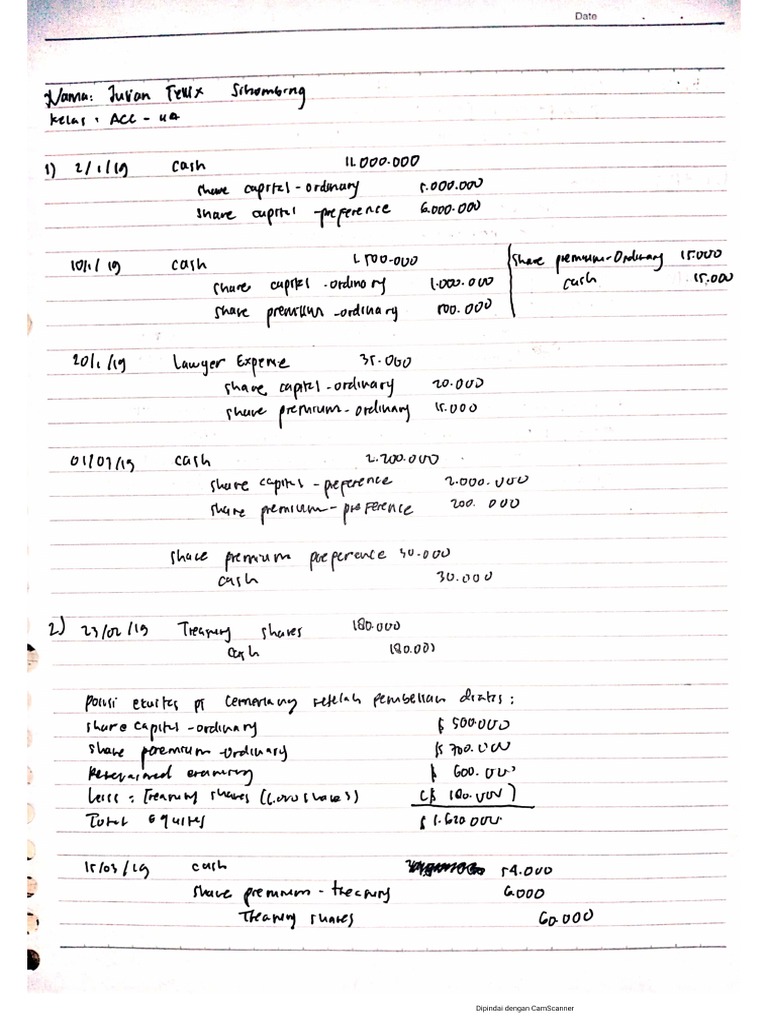 Date
Nama: Julian Felix Sihombing
Kelas: ACC - 4A
1) 2/1/19 cash 11.000.000
share capital - ordinary 5.000.000
share capital - preference 6.000.000
10/1/19 cash 1.500.000 share premium - Ordinary 15.000
share capital - ordinary 1.000.000 cash 15.000
share premium - ordinary 500.000
20/1/19 Lawyer Expense 35.000
share capital - ordinary 20.000
share premium - ordinary 15.000
01/07/19 cash 2.200.000
share capital - preference 2.000.000
share premium - preference 200.000
share premium preference 30.000
cash 30.000
2) 23/02/19 Treasury shares 180.000
cash 180.000
posisi ekuitas pt Cemerlang setelah pembelian diatas :
share capital - ordinary $ 500.000
share premium - ordinary $ 700.000
Retained earning $ 600.000
Less : Treasury shares (6.000 shares) ($ 180.000)
Total Equity $ 1.620.000
15/03/19 cash 54.000
share premium - treasury 6.000
Treasury shares 60.000
Dipindai dengan CamScanner